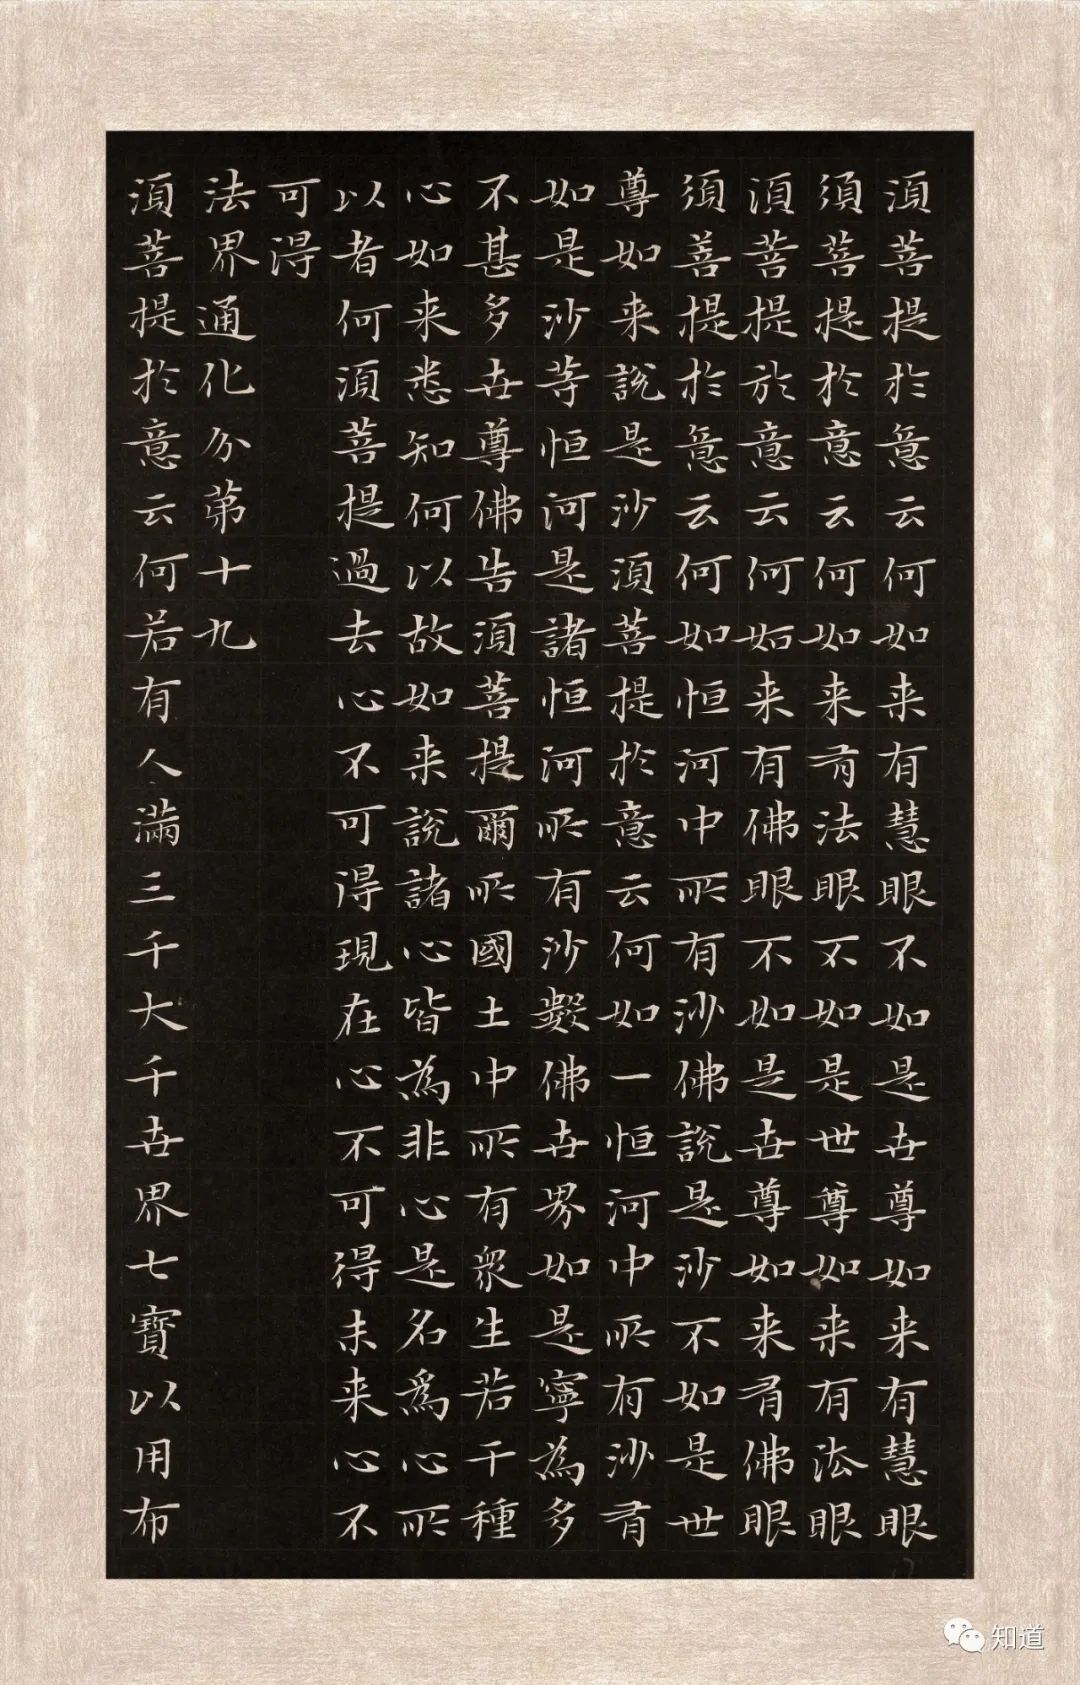 湏菩提於意云何如来有慧眼不如是世尊如来有慧眼
須菩提於意云何如来有法眼不如是世尊如来有法眼
湏菩提於意云何如来有佛眼不如是世尊如来有佛眼
須菩提於意云何如恒河中所有沙佛說是沙不如是世
尊如来說是沙湏菩提於意云何如一恒河中所有沙有
如是沙等恒河是諸恒河所有沙數佛世界如是寧為多
不甚多世尊佛告湏菩提爾所國土中所有衆生若干種
心如来悉知何以故如来說諸心皆為非心是名爲心所
以者何湏菩提過去心不可得現在心不可得未来心不
可得
法界通化分第十九
湏菩提於意云何若有人滿三千大千世界七寶以用布
知道